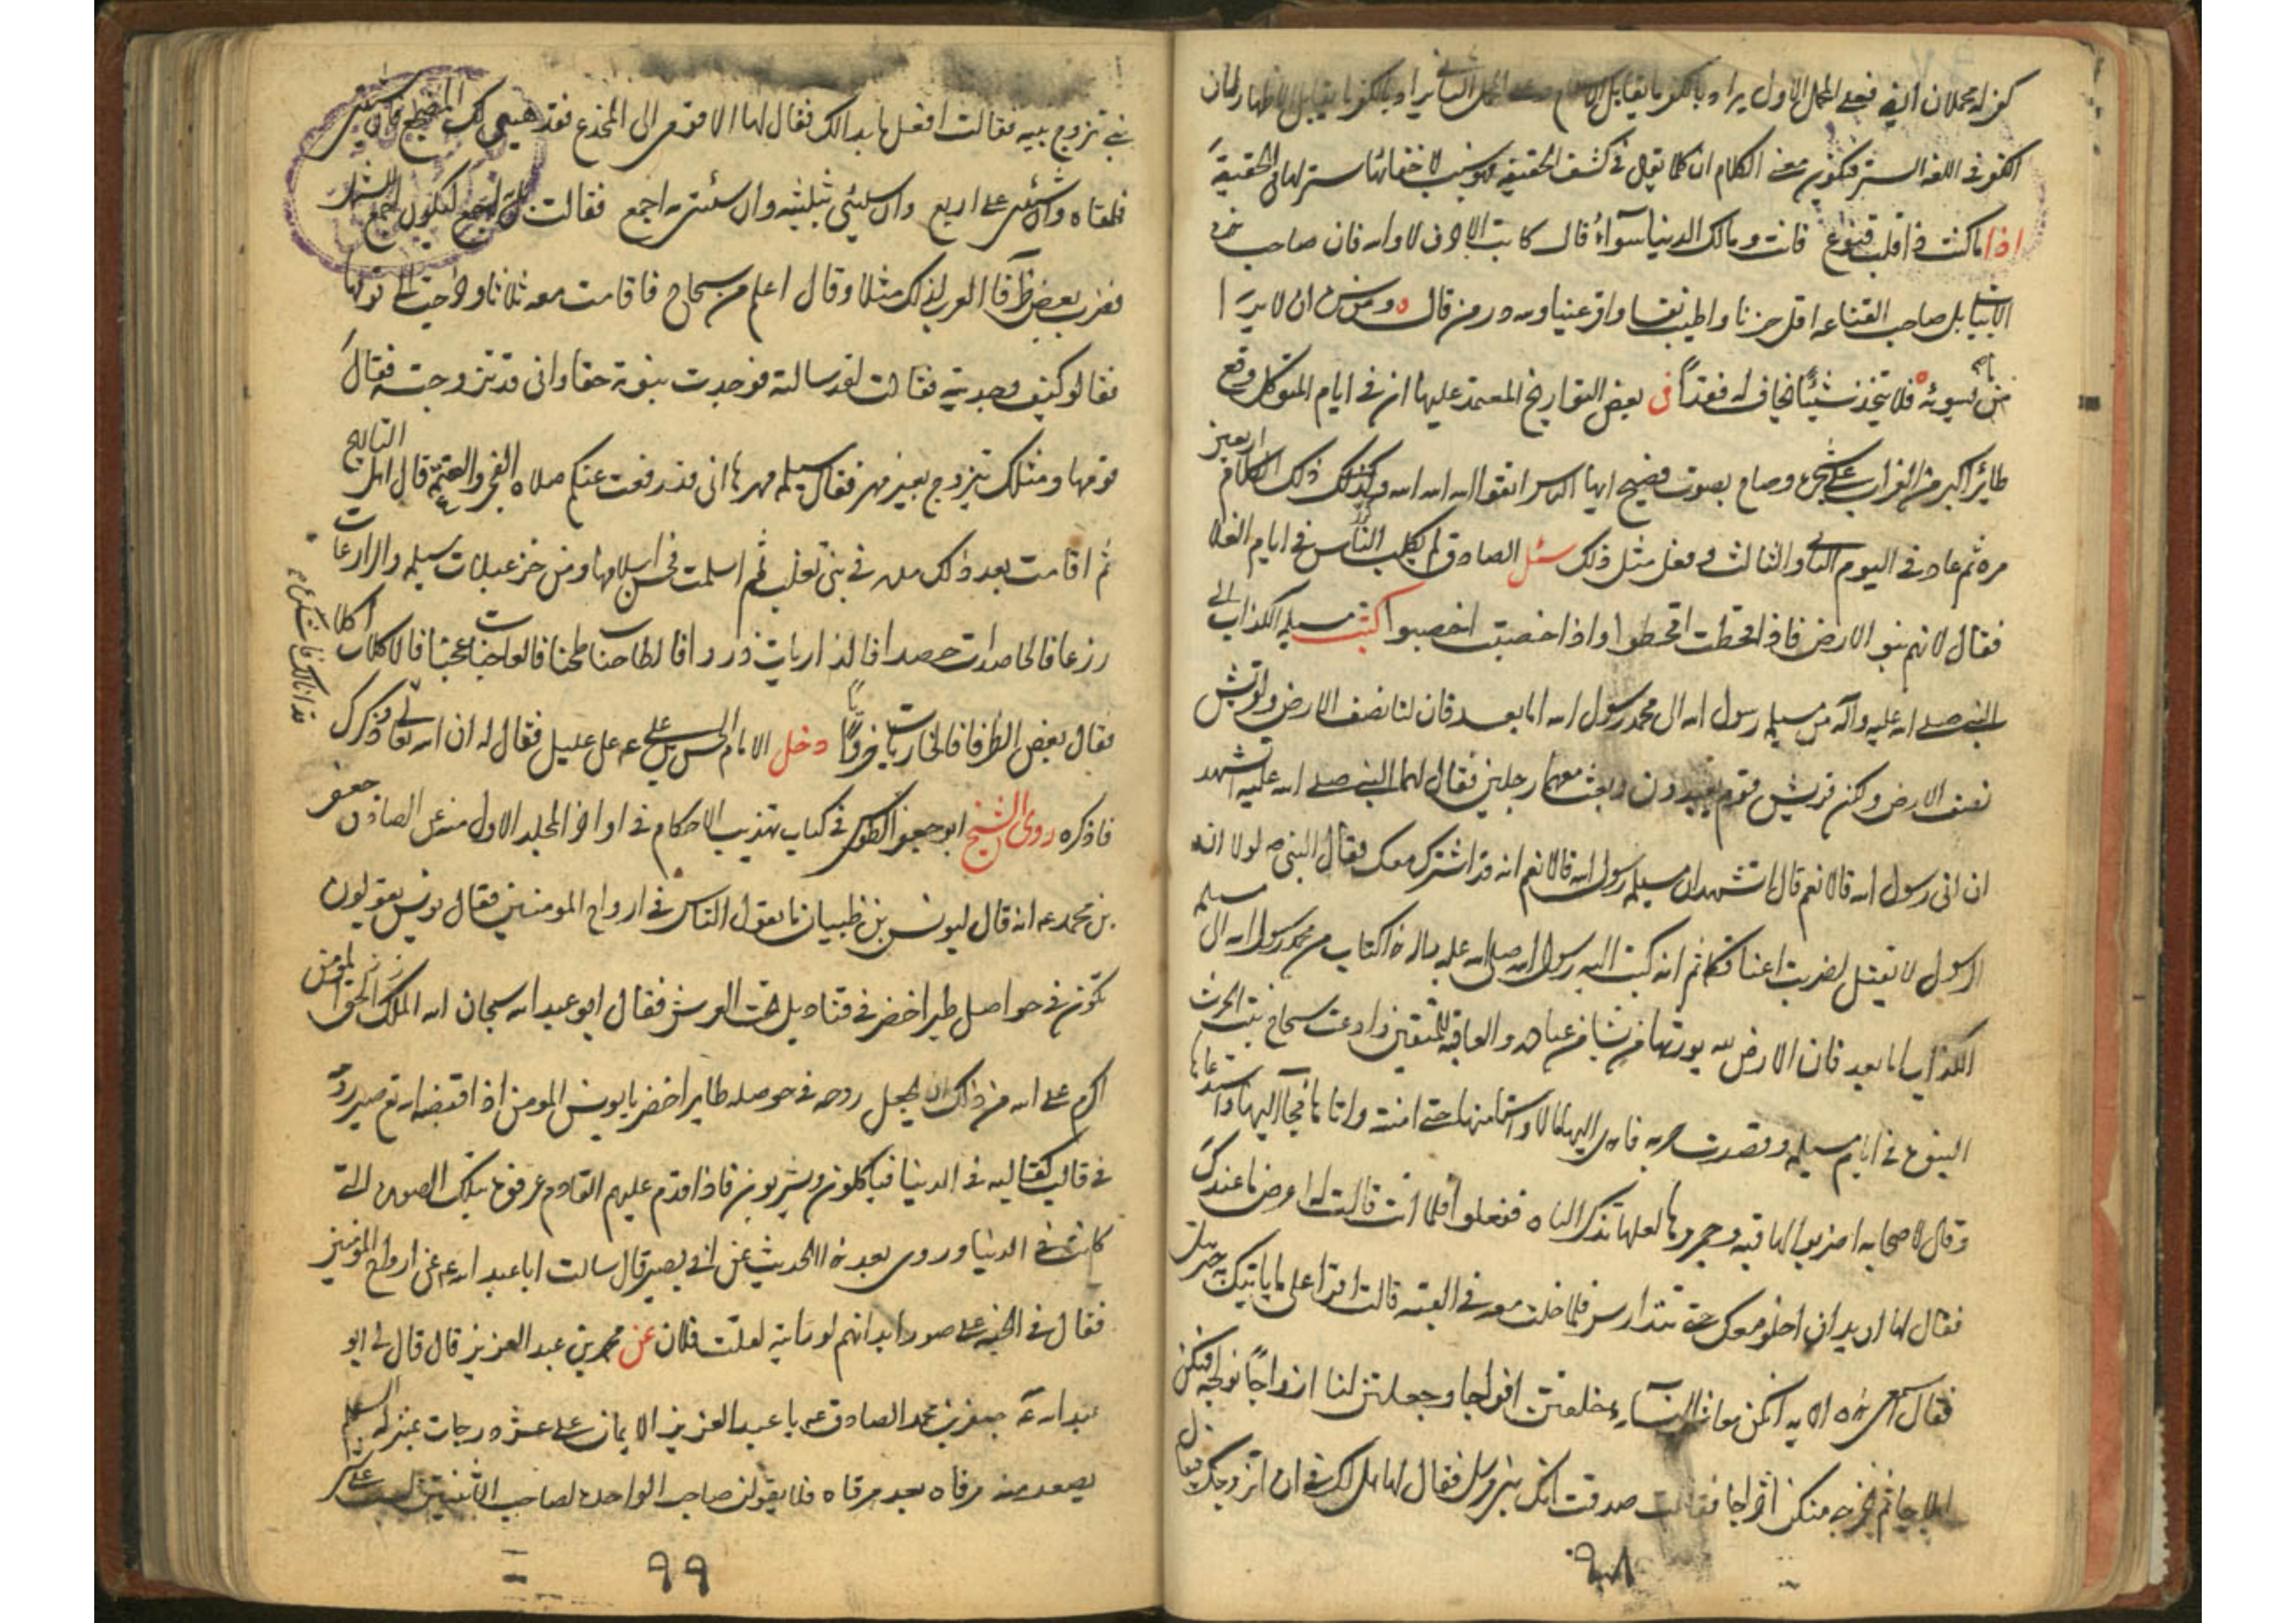 كفر له محملان فعلى الحمل الاول يراد بالكفر ما يقابل الاسلام وعلى الحمل الثاني يراد بالكفر ما يقابل الاظهار لان
الكفر في اللغة الستر فيكون معنى الكلام ان كلما يقال في كشف الحقيقة فهو سبب لاخفائها وستر لها لان الحقيقة
اذا ما كنت ذا قلب قنوع فانت ومالك الدنيا سوآء قال كاتب الاحرف لا والله فان صاحب
الدنيا بل صاحب القناعة اقل حزنا واطيب نفسا واقر عينا ولله در من قال ومن سره ان لا يرى
ما يسوئه فلا يتخذ شيئا يخاف له فقدا في بعض التواريخ المعتمد عليها ان في ايام المتوكل وقع
طائر اكبر من الغراب على شجرة وصاح بصوت فصيح ايها الناس اتقوا الله الله الله وكذلك ذلك الكلام اربعين
مرة ثم عاد في اليوم الثاني والثالث وفعل مثل ذلك سئل الصادق لم يكلب الناس في ايام الغلا
فقال لانهم بنو الارض فاذا قحطت اقحطوا واذا خصبت اخصبوا كتب مسيلمة الكذاب الى
النبي صلى الله عليه وآله من مسيلمة رسول الله الى محمد رسول الله اما بعد فان لنا نصف الارض ولقريش
نصف الارض ولكن قريش قوم يعتدون وبعث معهما رجلين فقال لهما النبي صلى الله عليه اتشهد
ان اني رسول الله قالا نعم قال اتشهدان مسيلمة رسول الله قالا نعم انه قد اشترك معك فقال النبي ص لولا ان
الرسول لا يقتل لضربت اعناقكما ثم انه كتب اليه رسول الله صلى الله عليه من محمد رسول الله الى مسيلمة
الكذاب اما بعد فان الارض لله يورثها من يشا من عباده والعاقبة للمتقين وادعت سجاح بنت الحرث
النبوة في ايام مسيلمة وقصدت حربه فاهدى اليها مالا واستامنها حتى امنته واتاها فجآ اليها واستدعاها
وقال لاصحابه اضربوا لها قبة وجمروها لعلها تذكر الباه ففعلوا فلما اتت قالت له اعرض ما عندك
فقال لها اني اريد ان اخلو معك حتى نتدارس فلما خلت معه في القبة قالت اقرا على ما ياتيك به جبرئيل
فقال اسمعي هذه الاية انكن معاشر النسآء خلقتن افواجا وجعلتن لنا ازواجا نولجه فيكن
ايلاجا ثم نخرجه منكن اخراجا فقالت صدقت انك نبي مرسل فقال لها هل لك في ان اتزوجك فيقال
٩٨
نبي تزوج نبيه فقالت افعل ما بدا لك فقال لها الا قومي الى المخدع فقد هيئ لك المضجع فان شئت
فلقاة وان شئتي على اربع وان شئتي بثلثيه وان شئتي به اجمع فقالت بل به اجمع ليكون اجمع للشمل
فضرب بعض ظرفآ العرب لذلك مثلا وقال اغلم من سجاح فاقامت معه ثلاثا وخرجت الى قومها
فقالوا كيف وجدتيه فقالت لقد سالته فوجدت نبوته حقا واني قد تزوجته فقال
قومها ومثلك تتزوج بغير مهر فقال مسيلمة مهرها اني قد رفعت عنكم صلاة الفجر والعتمة قال اهل التاريخ
ثم اقامت بعد ذلك مدة في بني تغلب ثم اسلمت فحسن اسلامها ومن خزعبلات مسيلمة والزارعات
زرعا فالحاصدات حصدا فالذاريات ذروا فالطاحنات طحنا فالعاجنات عجنا فالاكلات اكلا
فقال بعض الظرفا فالخاريات خريا دخل الامام الحسن بن علي ع على عليل فقال له ان الله تعالى ذكرك
قد اقالك فاشكره
فاذكره روى الشيخ ابو جعفر الطوسي في كتاب تهذيب الاحكام في اواخر المجلد الاول منه عن الصادق جعفر
بن محمد ع انه قال ليونس بن ظبيان ما يقول الناس في ارواح المومنين فقال يونس يقولون
تكون في حواصل طير اخضر في قناديل تحت العرش فقال ابو عبد الله سبحان الله الملك الحق المؤمن
اكرم على الله من ذلك ان يجعل روحه في حوصلة طاير اخضر يا يونس المومن اذا قبضه الله تع صير روحه
في قالب كقالبه في الدنيا فياكلون ويشربون فاذا قدم عليهم القادم عرفوه بتلك الصورة التي
كانت في الدنيا وروى بعد هذا الحديث عن ابي بصير قال سالت ابا عبد الله ع عن ارواح المؤمنين
فقال في الجنة على صور ابدانهم لو رايته لقلت فلان عن محمد بن عبد العزيز قال قال لي ابو
عبد الله جعفر بن محمد الصادق ع يا عبد العزيز الايمان على عشر درجات بمنزلة السلم
يصعد منه مرقاة بعد مرقاة فلا يقولن صاحب الواحد لصاحب الاثنين لست على
٩٩